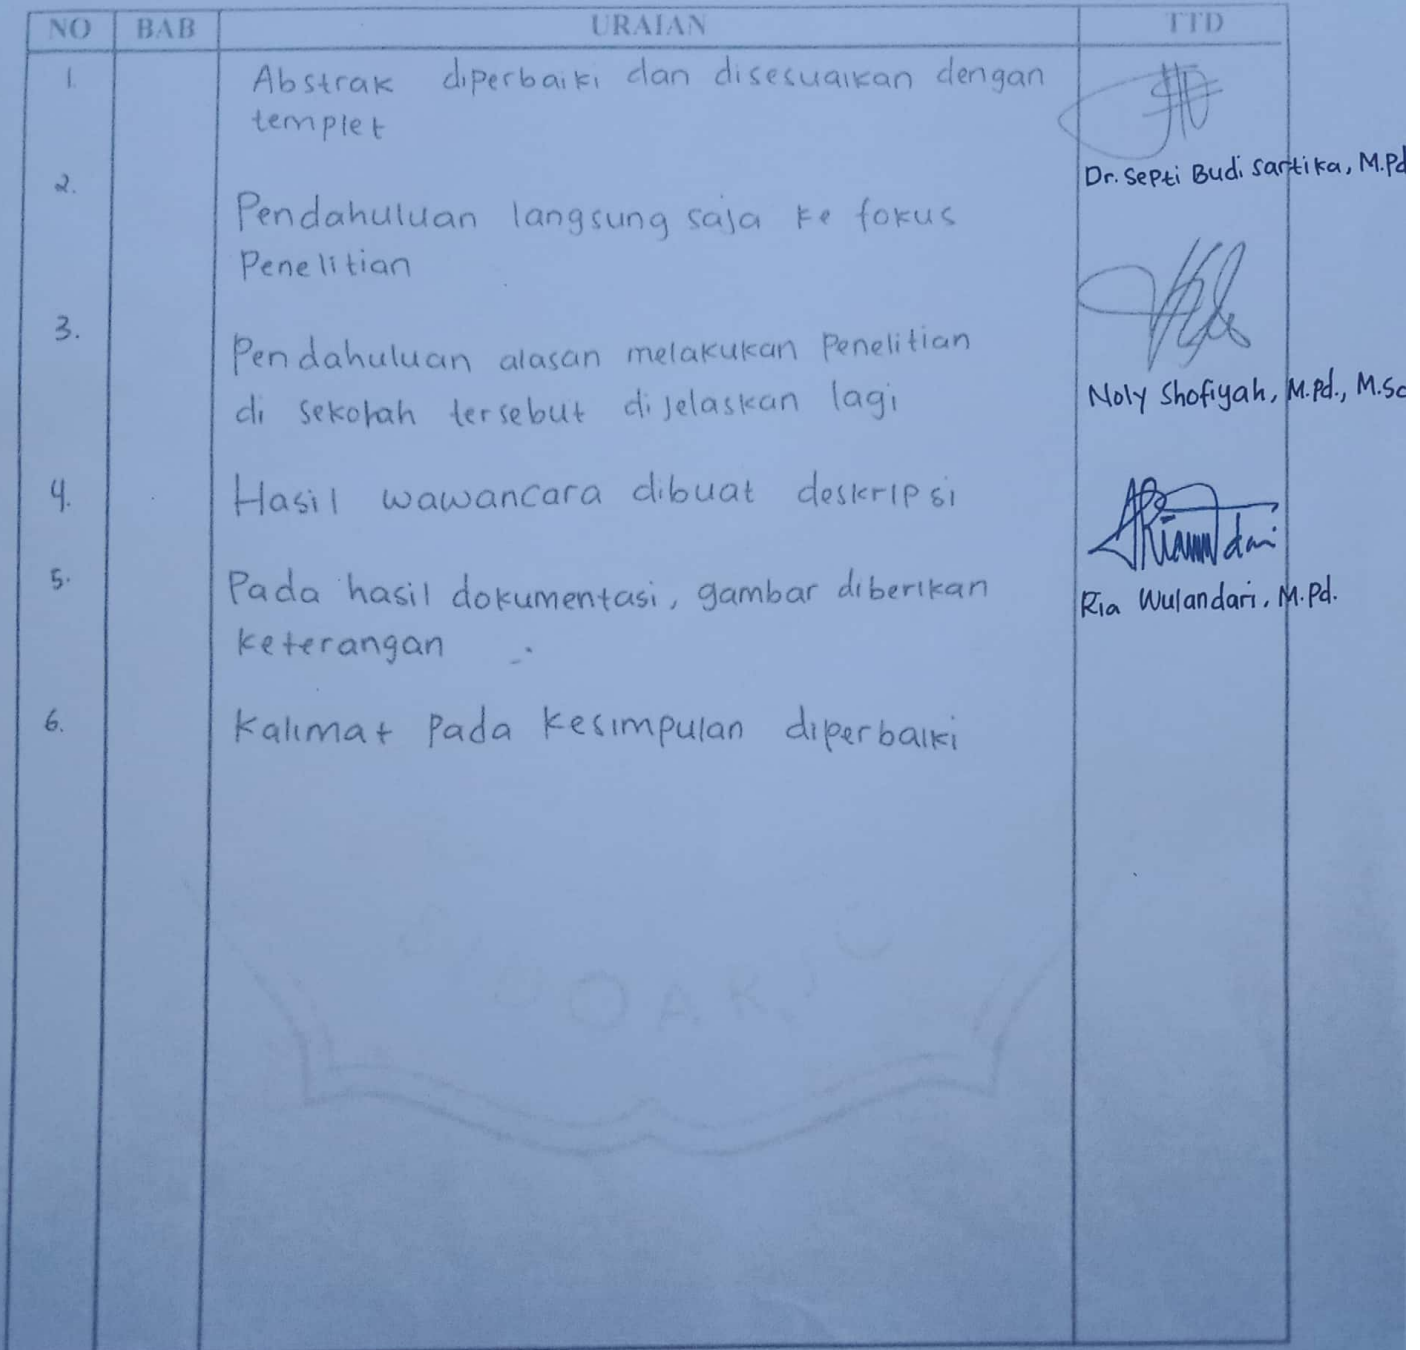 NO BAB URAIAN TTD
1. Abstrak diperbaiki dan disesuaikan dengan
templet
Dr. Septi Budi Sartika, M.Pd
2.
Pendahuluan langsung saja ke fokus
Penelitian
3.
Pendahuluan alasan melakukan Penelitian
di sekolah tersebut dijelaskan lagi
Noly Shofiyah, M.Pd., M.Sc
4. Hasil wawancara dibuat deskripsi
5. Pada hasil dokumentasi, gambar diberikan
keterangan
Ria Wulandari, M.Pd.
6. Kalimat pada kesimpulan diperbaiki